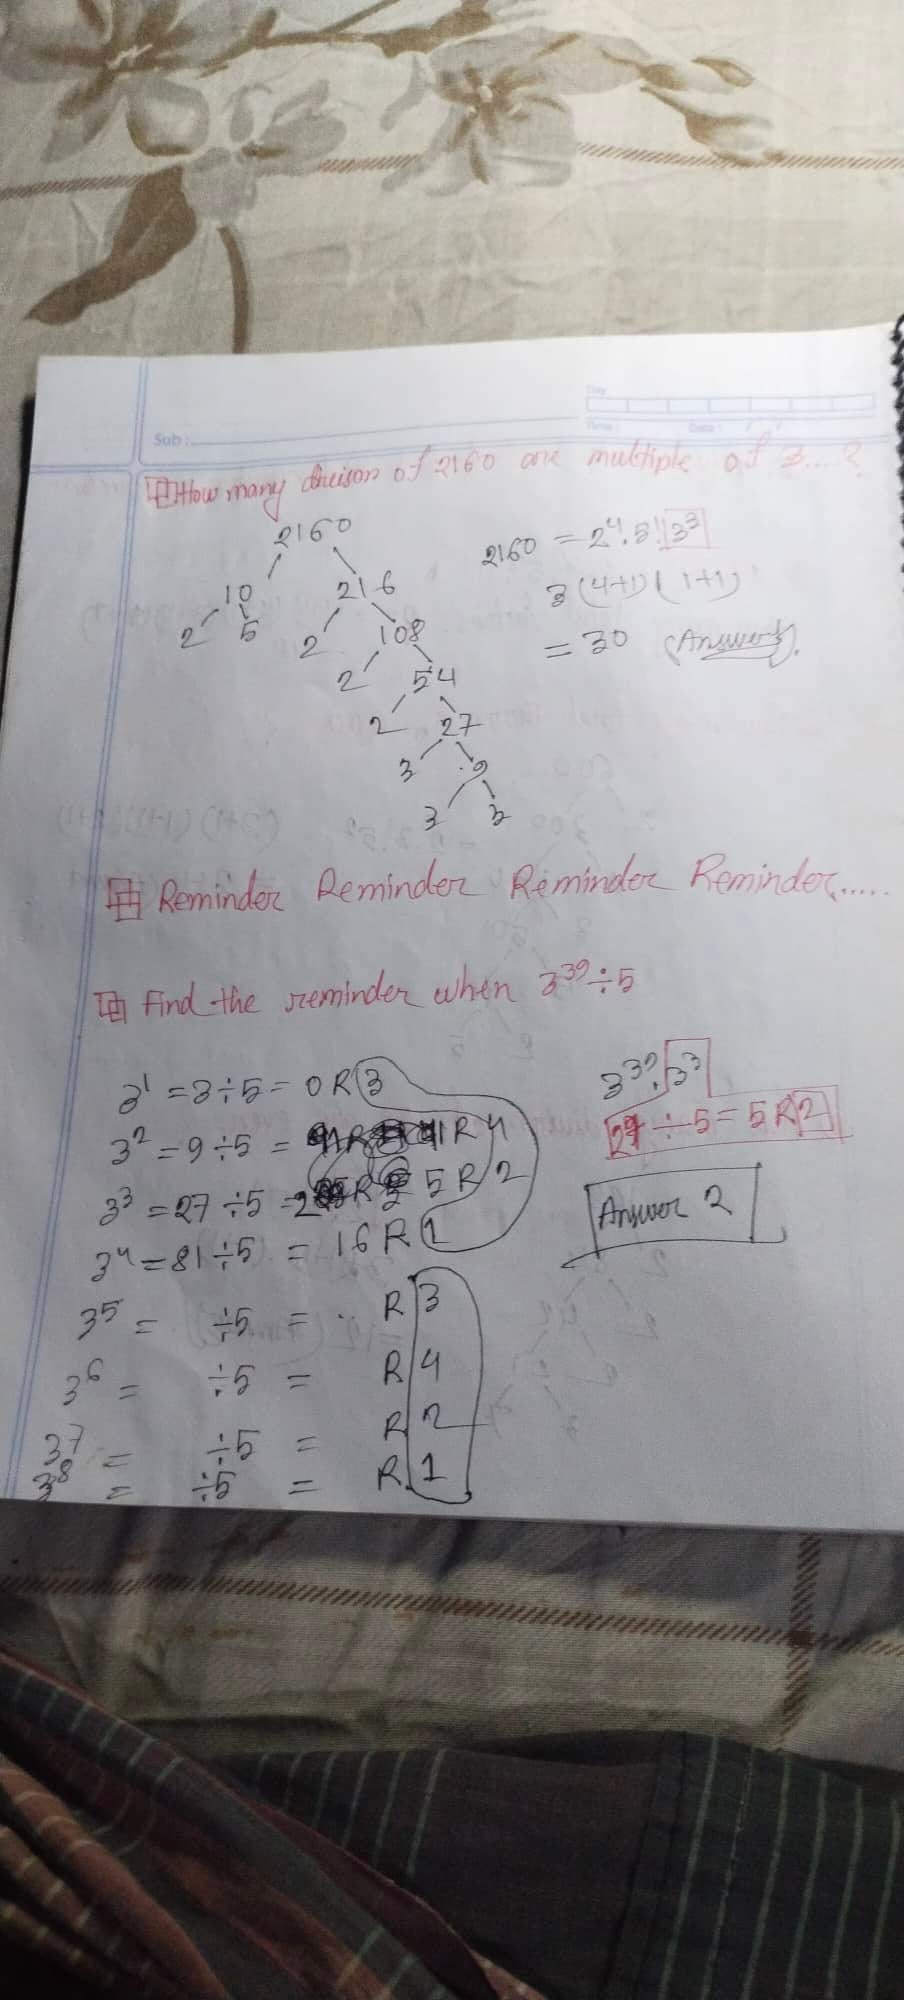 Day
Time : Date : / /
Sub :
How many divison of 2160 are multiple of 3...?
2160
10 216
2 5 2 108
2 54
2 27
3 9
3 3
2160 = 2⁴.5¹.3³
3 (4+1) (1+1)
= 30 (Answer).
Reminder Reminder Reminder Reminder.....
Find the reminder when 3³⁹÷5
3¹ = 3÷5 = 0 R 3
3² = 9÷5 = 1 R 4
3³ = 27÷5 = 5 R 2
3⁴ = 81÷5 = 16 R 1
3⁵ = ÷5 = .. R 3
3⁶ = ÷5 = R 4
3⁷ = ÷5 = R 2
3⁸ = ÷5 = R 1
3³⁹. 3³
27 ÷ 5 = 5 R 2
Answer 2